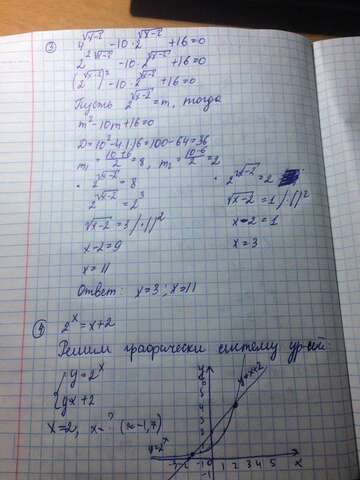 ③ 4^√(x-2) - 10·2^√(x-2) + 16 = 0
2^2√(x-2) - 10·2^√(x-2) + 16 = 0
(2^√(x-2))² - 10·2^√(x-2) + 16 = 0
Пусть 2^√(x-2) = m, тогда
m² - 10m + 16 = 0
D = 10² - 4·1·16 = 100 - 64 = 36
m₁ = (10+6)/2 = 8, m₂ = (10-6)/2 = 2
• 2^√(x-2) = 8
2^√(x-2) = 2³
√(x-2) = 3 /·()²
x - 2 = 9
x = 11
• 2^√(x-2) = 2
√(x-2) = 1 /()²
x - 2 = 1
x = 3
Ответ: x = 3; x = 11
④ 2^x = x + 2
Решим графически систему ур-ий:
{ y = 2^x
y x + 2
x = 2, x = ? (≈ -1,7)
y
y = x + 2
y = 2^x
-1 0 1 2 3 4 5 x
-1